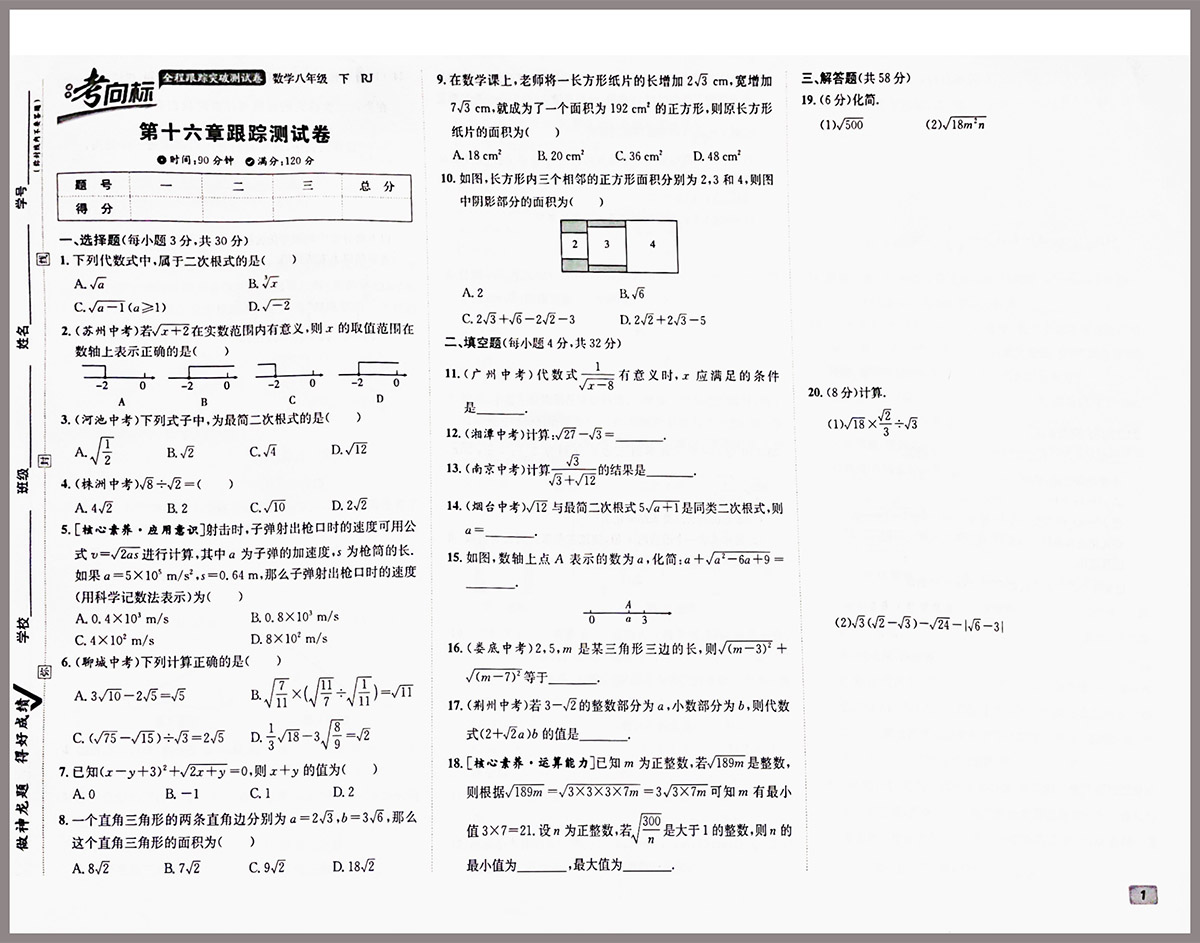 考向标 全程跟踪突破测试卷 数学八年级 下 RJ
第十六章跟踪测试卷
时间:90分钟 满分:120分
题号 一 二 三 总分
得分
学号
姓名
班级
学校
做神龙题 得好成绩
一、选择题(每小题3分,共30分)
1.下列代数式中,属于二次根式的是( )
A.√a B.∛x
C.√(a-1)(a≥1) D.√(-2)
2.(苏州中考)若√(x+2)在实数范围内有意义,则x的取值范围在
数轴上表示正确的是( )
-2 0 -2 0 -2 0 -2 0
A B C D
3.(河池中考)下列式子中,为最简二次根式的是( )
A.√(1/2) B.√2 C.√4 D.√12
4.(株洲中考)√8÷√2=( )
A.4√2 B.2 C.√10 D.2√2
5.[核心素养·应用意识]射击时,子弹射出枪口时的速度可用公
式v=√(2as)进行计算,其中a为子弹的加速度,s为枪筒的长.
如果a=5×10⁵ m/s²,s=0.64 m,那么子弹射出枪口时的速度
(用科学记数法表示)为( )
A.0.4×10³ m/s B.0.8×10³ m/s
C.4×10² m/s D.8×10² m/s
6.(聊城中考)下列计算正确的是( )
A.3√10-2√5=√5 B.√(7/11)×(√(11/7)÷√(1/11))=√11
C.(√75-√15)÷√3=2√5 D.1/3√18-3√(8/9)=√2
7.已知(x-y+3)²+√(2x+y)=0,则x+y的值为( )
A.0 B.-1 C.1 D.2
8.一个直角三角形的两条直角边分别为a=2√3,b=3√6,那么
这个直角三角形的面积为( )
A.8√2 B.7√2 C.9√2 D.18√2
9.在数学课上,老师将一长方形纸片的长增加2√3 cm,宽增加
7√3 cm,就成为了一个面积为192 cm²的正方形,则原长方形
纸片的面积为( )
A.18 cm² B.20 cm² C.36 cm² D.48 cm²
10.如图,长方形内三个相邻的正方形面积分别为2,3和4,则图
中阴影部分的面积为( )
2 3 4
A.2 B.√6
C.2√3+√6-2√2-3 D.2√2+2√3-5
二、填空题(每小题4分,共32分)
11.(广州中考)代数式1/√(x-8)有意义时,x应满足的条件
是______.
12.(湘潭中考)计算:√27-√3=______.
13.(南京中考)计算√3/(√3+√12)的结果是______.
14.(烟台中考)√12与最简二次根式5√(a+1)是同类二次根式,则
a=______.
15.如图,数轴上点A表示的数为a,化简:a+√(a²-6a+9)=
______.
A
0 a 3
16.(娄底中考)2,5,m是某三角形三边的长,则√((m-3)²)+
√((m-7)²)等于______.
17.(荆州中考)若3-√2的整数部分为a,小数部分为b,则代数
式(2+√2a)b的值是______.
18.[核心素养·运算能力]已知m为正整数,若√(189m)是整数,
则根据√(189m)=√(3×3×3×7m)=3√(3×7m)可知m有最小
值3×7=21.设n为正整数,若√(300/n)是大于1的整数,则n的
最小值为______,最大值为______.
三、解答题(共58分)
19.(6分)化简.
(1)√500 (2)√(18m²n)
20.(8分)计算.
(1)√18×√2/3÷√3
(2)√3(√2-√3)-√24-|√6-3|
1